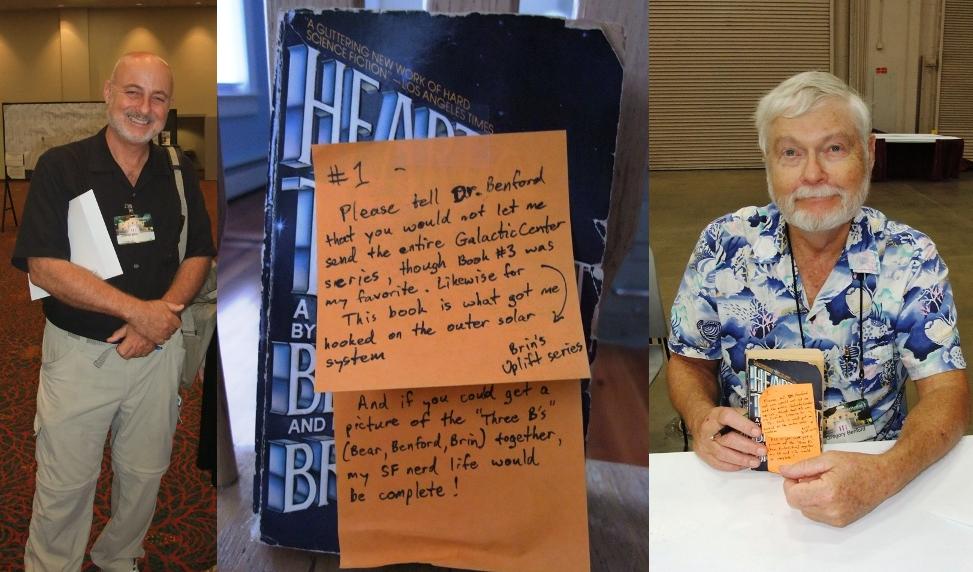 "A GLITTERING NEW WORK OF HARD
SCIENCE FICTION" —LOS ANGELES TIMES
HEART
A
BY
BE
AND
BR
#1 -
Please tell Dr. Benford
that you would not let me
send the entire Galactic Center
series, though Book #3 was
my favorite. Likewise for
Brin's
Uplift series
This book is what got me
hooked on the outer solar
system
And if you could get a
picture of the "Three B's"
(Bear, Benford, Brin) together,
my SF nerd life would
be complete!
HEART
Gregory Benford